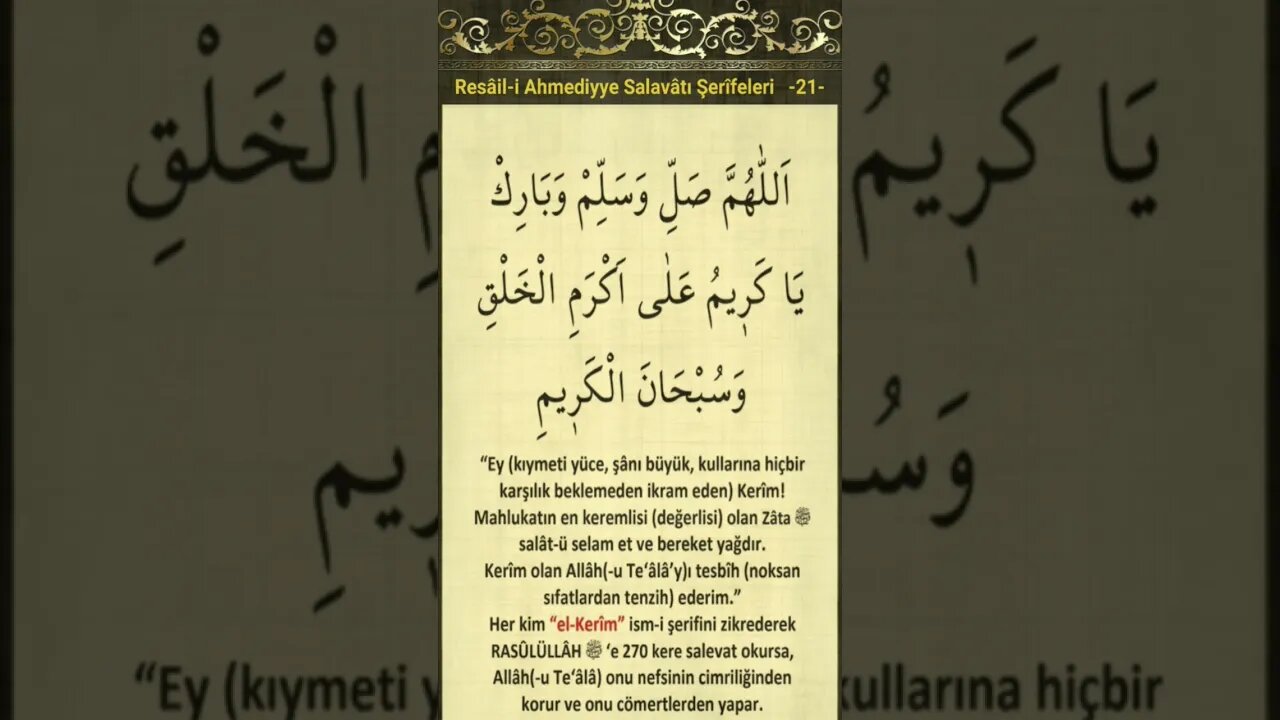 Resâil-i Ahmediyye Salavâtı Şerîfeleri -21-
اَللّٰهُمَّ صَلِّ وَسَلِّمْ وَبَارِكْ
يَا كَرِيمُ عَلٰى اَكْرَمِ الْخَلْقِ
وَسُبْحَانَ الْكَرِيمِ
“Ey (kıymeti yüce, şânı büyük, kullarına hiçbir
karşılık beklemeden ikram eden) Kerîm!
Mahlukatın en keremlisi (değerlisi) olan Zâta ﷺ
salât-ü selam et ve bereket yağdır.
Kerîm olan Allâh(-u Te‘âlâ’y)ı tesbîh (noksan
sıfatlardan tenzih) ederim.”
Her kim “el-Kerîm” ism-i şerifini zikrederek
RASÛLÜLLÂH ﷺ ‘e 270 kere salevat okursa,
Allâh(-u Te‘âlâ) onu nefsinin cimriliğinden
korur ve onu cömertlerden yapar.